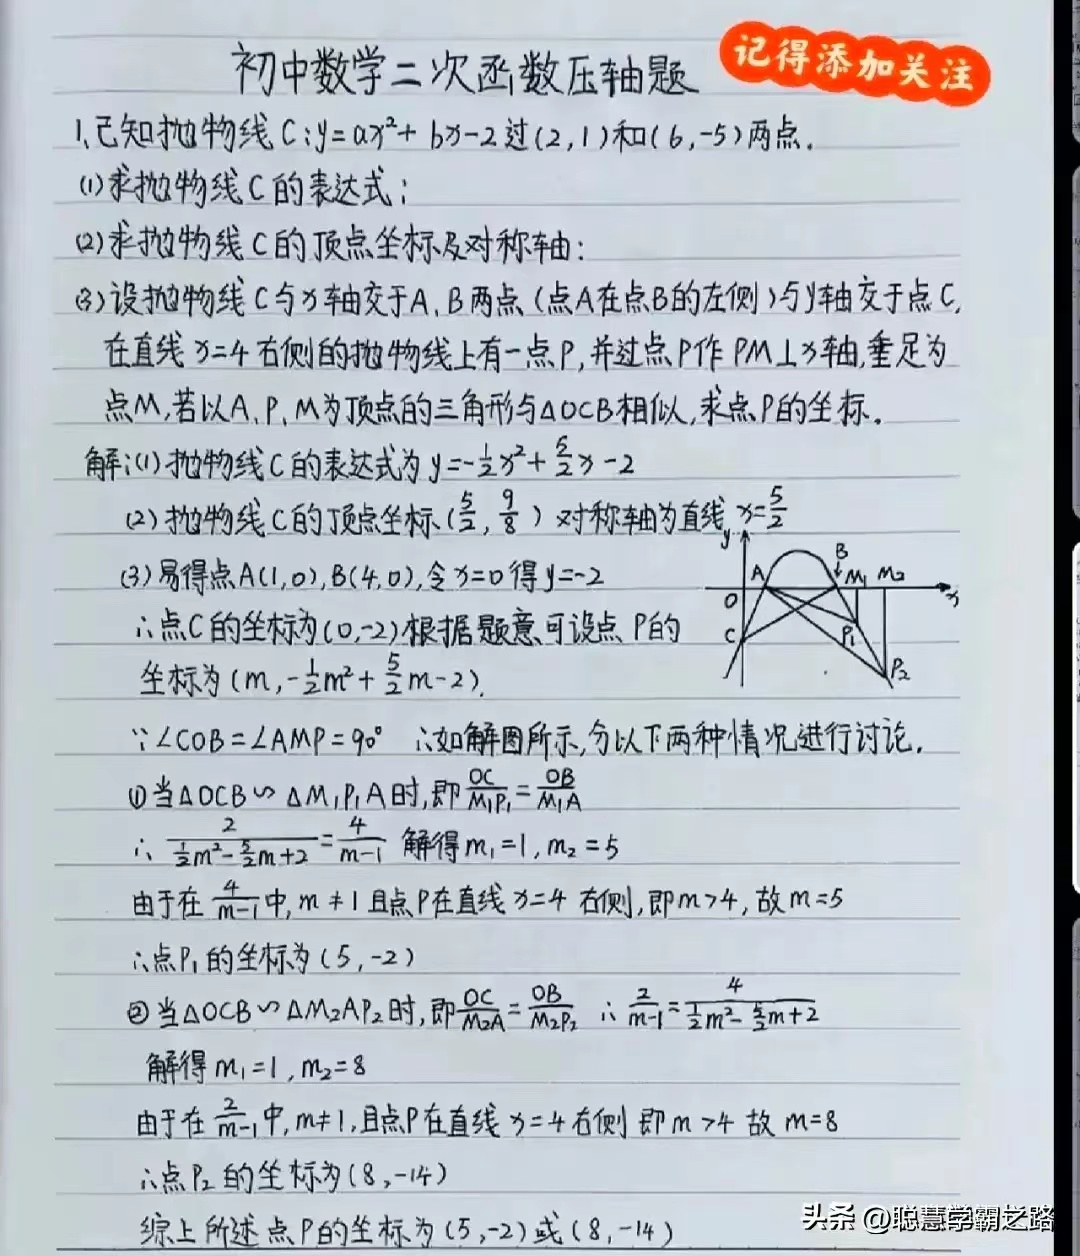 初中数学二次函数压轴题
记得添加关注
1.已知抛物线C:y=ax²+bx-2过(2,1)和(6,-5)两点.
(1)求抛物线C的表达式;
(2)求抛物线C的顶点坐标及对称轴:
(3)设抛物线C与x轴交于A、B两点(点A在点B的左侧)与y轴交于点C,
在直线x=4右侧的抛物线上有一点P,并过点P作PM⊥x轴,垂足为
点M,若以A、P、M为顶点的三角形与△OCB相似,求点P的坐标.
解:(1)抛物线C的表达式为y=-1/2x²+5/2x-2
(2)抛物线C的顶点坐标(5/2,9/8)对称轴为直线x=5/2
(3)易得点A(1,0),B(4,0),令x=0得y=-2
∴点C的坐标为(0,-2)根据题意可设点P的
坐标为(m,-1/2m²+5/2m-2).
y
A
B
M₁
M₂
x
O
C
P₁
P₂
∵∠COB=∠AMP=90° ∴如解图所示,分以下两种情况进行讨论.
①当△OCB∽△M₁P₁A时,即OC/M₁P₁=OB/M₁A
∴2/(1/2m²-5/2m+2)=4/(m-1) 解得m₁=1,m₂=5
由于在4/(m-1)中,m≠1且点P在直线x=4右侧,即m>4,故m=5
∴点P₁的坐标为(5,-2)
②当△OCB∽△M₂AP₂时,即OC/M₂A=OB/M₂P₂ ∴2/(m-1)=4/(1/2m²-5/2m+2)
解得m₁=1,m₂=8
由于在2/(m-1)中,m≠1,且点P在直线x=4右侧即m>4故m=8
∴点P₂的坐标为(8,-14)
综上所述点P的坐标为(5,-2)或(8,-14)
头条@聪慧学霸之路